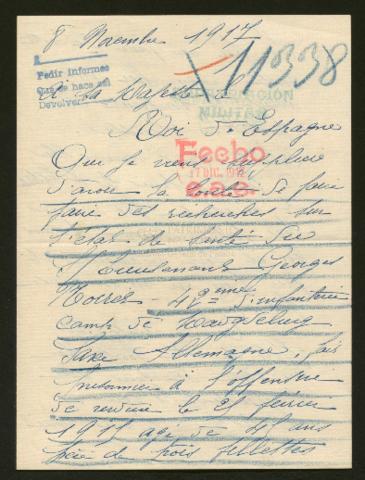 8 Novembre 1917
11338
Pedir informes
Que se hace así
Devolver
A sa Majesté
MILITAR
Roi d'Espagne
Fecho
17 DIC. 1917
Que je viens supplier
d'avoir la bonté de faire
faire des recherches sur
l'état de santé du
Georges
42ème d'infanterie
camp de
Saxe Allemagne, fais
prisonnier à l'offensive
de Verdun le 21 février
âgé de 41 ans
père de trois fillettes